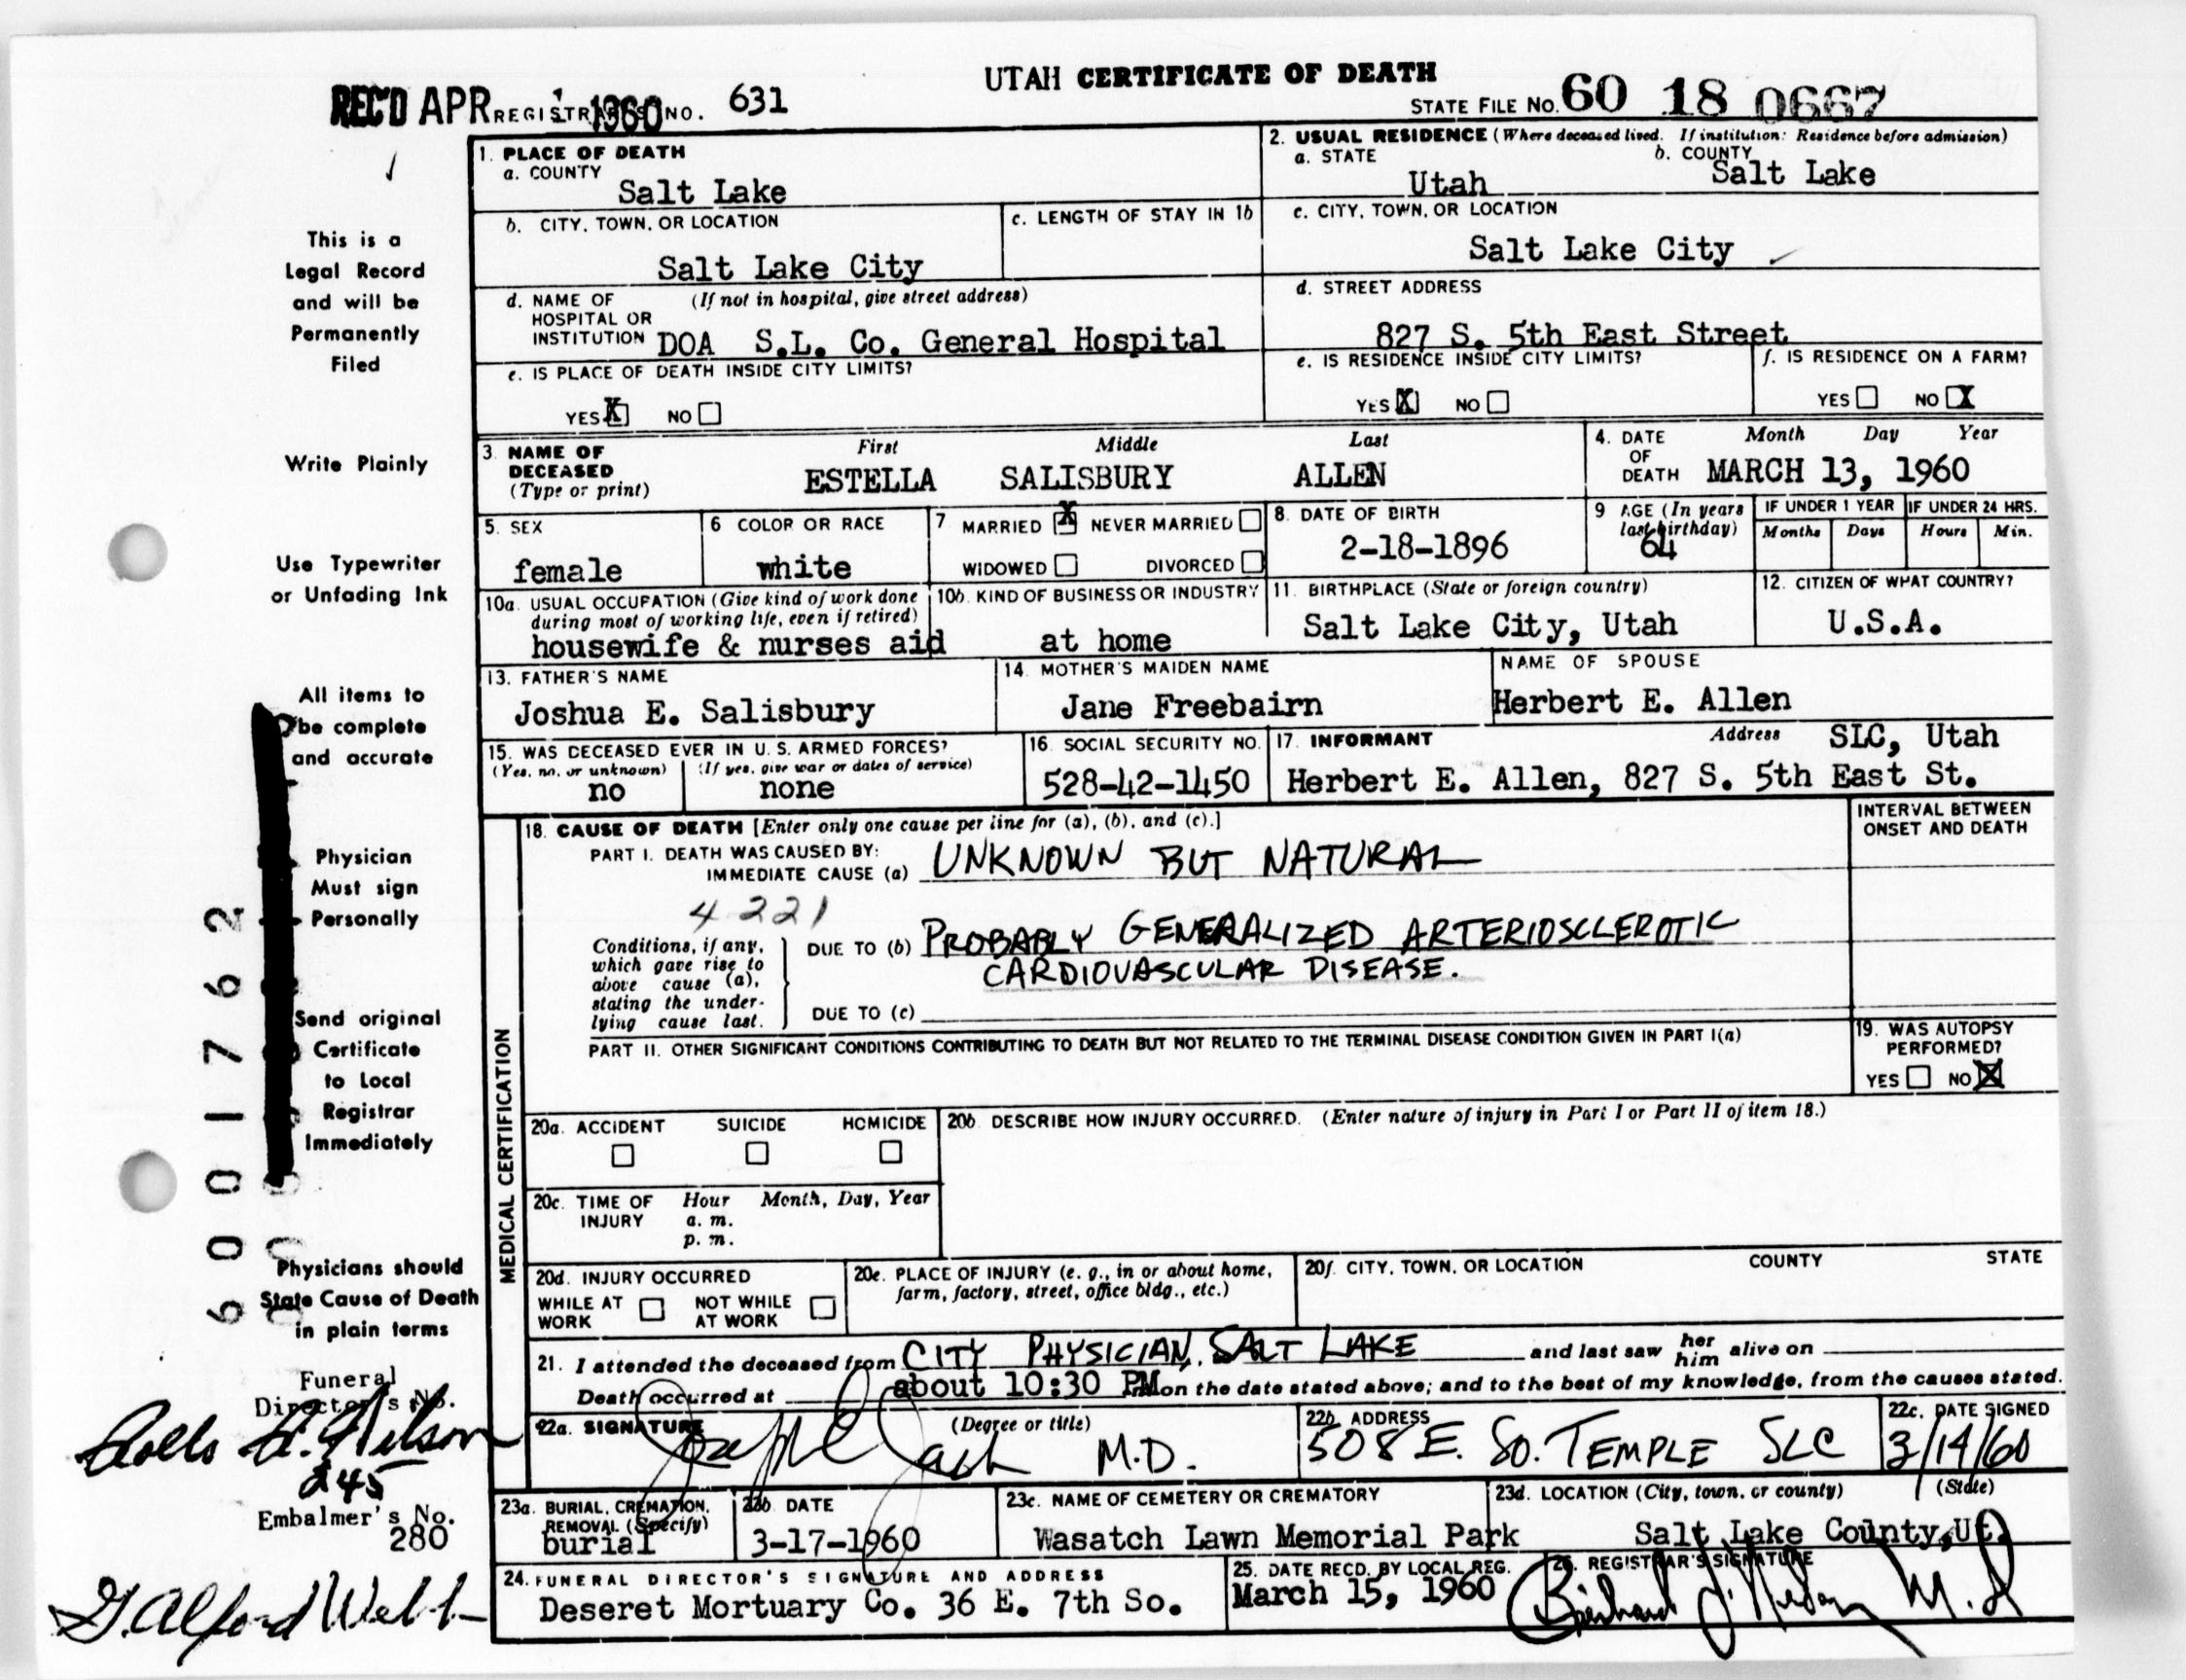 UTAH CERTIFICATE OF DEATH
REC'D APR 1 1960
REGISTRAR'S NO. 631
STATE FILE NO. 60 18 0667
This is a
Legal Record
and will be
Permanently
Filed
Write Plainly
Use Typewriter
or Unfading Ink
All items to
be complete
and accurate
Physician
Must sign
Personally
Send original
Certificate
to Local
Registrar
Immediately
Physicians should
State Cause of Death
in plain terms
Funeral
Director's No.
A. Nelson
245
Embalmer's No.
280
G. Alford Webb
6001762
1. PLACE OF DEATH
a. COUNTY
Salt Lake
b. CITY, TOWN, OR LOCATION
Salt Lake City
c. LENGTH OF STAY IN 1b
d. NAME OF (If not in hospital, give street address)
HOSPITAL OR
INSTITUTION DOA S.L. Co. General Hospital
e. IS PLACE OF DEATH INSIDE CITY LIMITS?
YES X NO
2. USUAL RESIDENCE (Where deceased lived. If institution: Residence before admission)
a. STATE b. COUNTY
Utah Salt Lake
c. CITY, TOWN, OR LOCATION
Salt Lake City
d. STREET ADDRESS
827 S. 5th East Street
e. IS RESIDENCE INSIDE CITY LIMITS?
YES X NO
f. IS RESIDENCE ON A FARM?
YES NO X
3. NAME OF First Middle Last
DECEASED
(Type or print) ESTELLA SALISBURY ALLEN
4. DATE Month Day Year
OF
DEATH MARCH 13, 1960
5. SEX
female
6 COLOR OR RACE
white
7 MARRIED X NEVER MARRIED
WIDOWED DIVORCED
8. DATE OF BIRTH
2-18-1896
9 AGE (In years
last birthday)
64
IF UNDER 1 YEAR IF UNDER 24 HRS.
Months Days Hours Min.
10a. USUAL OCCUPATION (Give kind of work done
during most of working life, even if retired)
housewife & nurses aid
10b. KIND OF BUSINESS OR INDUSTRY
at home
11. BIRTHPLACE (State or foreign country)
Salt Lake City, Utah
12. CITIZEN OF WHAT COUNTRY?
U.S.A.
13. FATHER'S NAME
Joshua E. Salisbury
14. MOTHER'S MAIDEN NAME
Jane Freebairn
NAME OF SPOUSE
Herbert E. Allen
15. WAS DECEASED EVER IN U. S. ARMED FORCES?
(Yes, no, or unknown) (If yes, give war or dates of service)
no none
16. SOCIAL SECURITY NO.
528-42-1450
17. INFORMANT Address SLC, Utah
Herbert E. Allen, 827 S. 5th East St.
MEDICAL CERTIFICATION
18. CAUSE OF DEATH [Enter only one cause per line for (a), (b), and (c).]
INTERVAL BETWEEN
ONSET AND DEATH
PART I. DEATH WAS CAUSED BY:
IMMEDIATE CAUSE (a) UNKNOWN BUT NATURAL
4221
Conditions, if any,
which gave rise to
above cause (a),
stating the under-
lying cause last.
DUE TO (b) PROBABLY GENERALIZED ARTERIOSCLEROTIC
CARDIOVASCULAR DISEASE.
DUE TO (c)
PART II. OTHER SIGNIFICANT CONDITIONS CONTRIBUTING TO DEATH BUT NOT RELATED TO THE TERMINAL DISEASE CONDITION GIVEN IN PART I(a)
19. WAS AUTOPSY
PERFORMED?
YES NO X
20a. ACCIDENT SUICIDE HOMICIDE
20b. DESCRIBE HOW INJURY OCCURRED. (Enter nature of injury in Part I or Part II of item 18.)
20c. TIME OF Hour Month, Day, Year
INJURY a. m.
p. m.
20d. INJURY OCCURRED
WHILE AT NOT WHILE
WORK AT WORK
20e. PLACE OF INJURY (e. g., in or about home,
farm, factory, street, office bldg., etc.)
20f. CITY, TOWN, OR LOCATION COUNTY STATE
21. I attended the deceased from CITY PHYSICIAN, SALT LAKE and last saw her him alive on
Death occurred at about 10:30 PM on the date stated above; and to the best of my knowledge, from the causes stated.
22a. SIGNATURE (Degree or title)
Joseph M.D.
22b. ADDRESS
508 E. SO. TEMPLE SLC
22c. DATE SIGNED
3/14/60
23a. BURIAL, CREMATION,
REMOVAL (Specify)
burial
23b DATE
3-17-1960
23c. NAME OF CEMETERY OR CREMATORY
Wasatch Lawn Memorial Park
23d. LOCATION (City, town, or county) (State)
Salt Lake County, Ut.
24. FUNERAL DIRECTOR'S SIGNATURE AND ADDRESS
Deseret Mortuary Co. 36 E. 7th So.
25. DATE RECD. BY LOCAL REG.
March 15, 1960
26. REGISTRAR'S SIGNATURE
M.D.